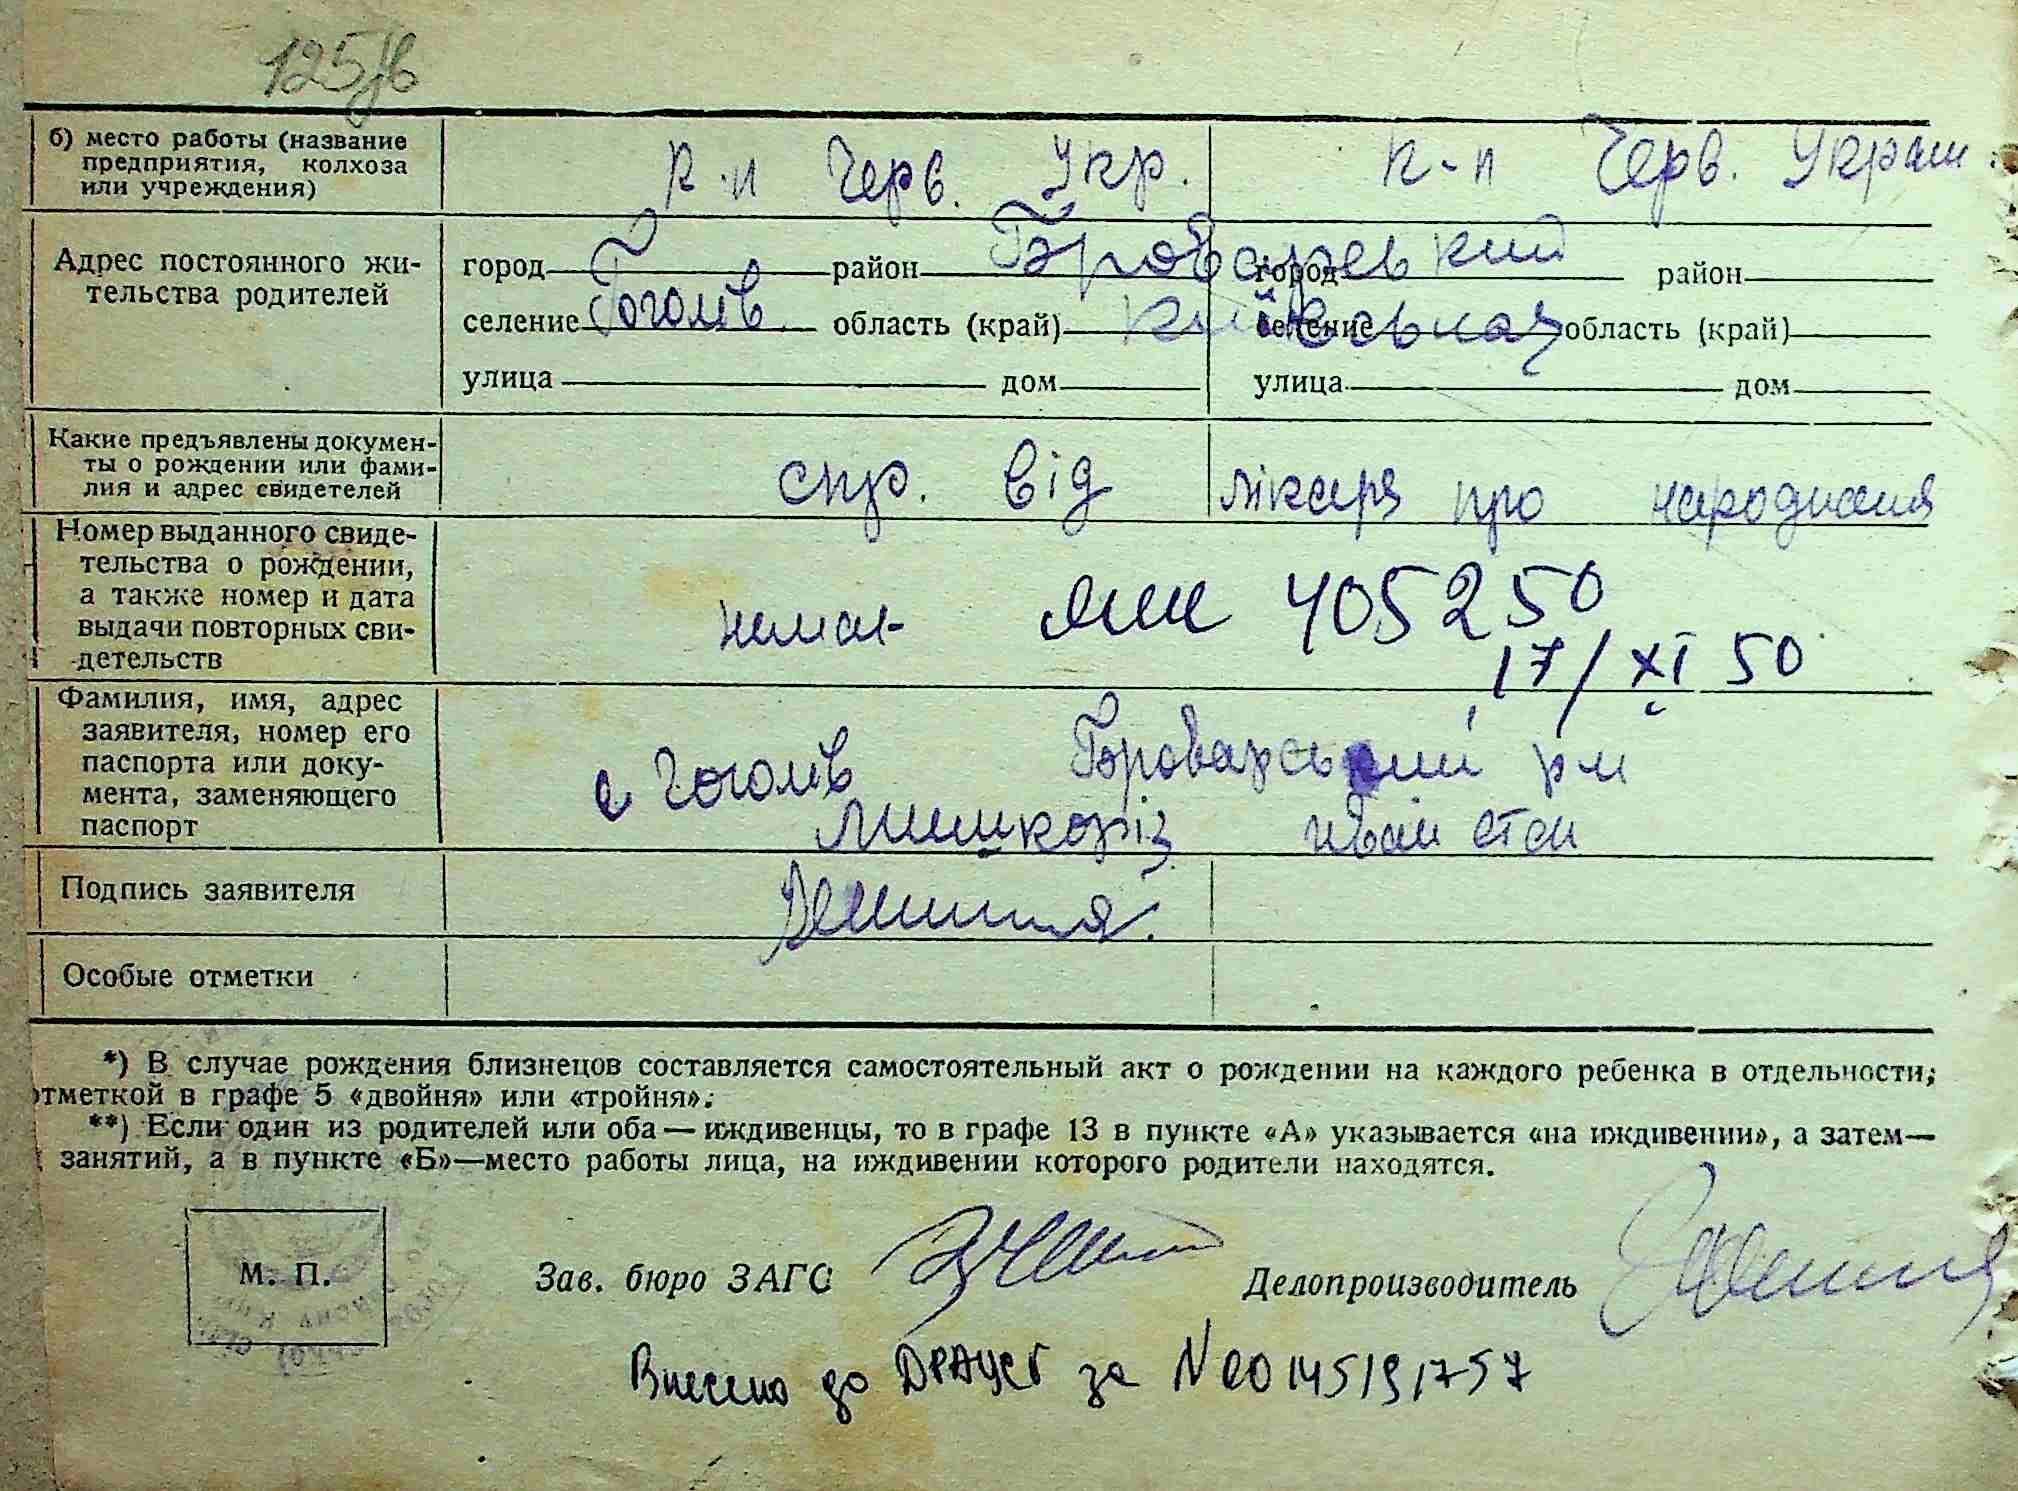 125
б) место работы (название
предприятия, колхоза
или учреждения)
к-п Черв. Укр.
к-п Черв. Україн.
Адрес постоянного жи-
тельства родителей
город район Броварський
селение Гоголів область (край) Київська
улица дом
город район
селение область (край)
улица дом
Какие предъявлены докумен-
ты о рождении или фами-
лия и адрес свидетелей
спр. від лікаря про народження
Номер выданного свиде-
тельства о рождении,
а также номер и дата
выдачи повторных сви-
детельств
405250
17/XI 50
Фамилия, имя, адрес
заявителя, номер его
паспорта или доку-
мента, заменяющего
паспорт
с Гоголів Броварський р-н
Подпись заявителя
Особые отметки
*) В случае рождения близнецов составляется самостоятельный акт о рождении на каждого ребенка в отдельности;
отметкой в графе 5 «двойня» или «тройня».
**) Если один из родителей или оба — иждивенцы, то в графе 13 в пункте «А» указывается «на иждивении», а затем—
занятий, а в пункте «Б»—место работы лица, на иждивении которого родители находятся.
М. П.
Зав. бюро ЗАГС
Делопроизводитель
Внесено до ДРАЦСГ за N 00145191757